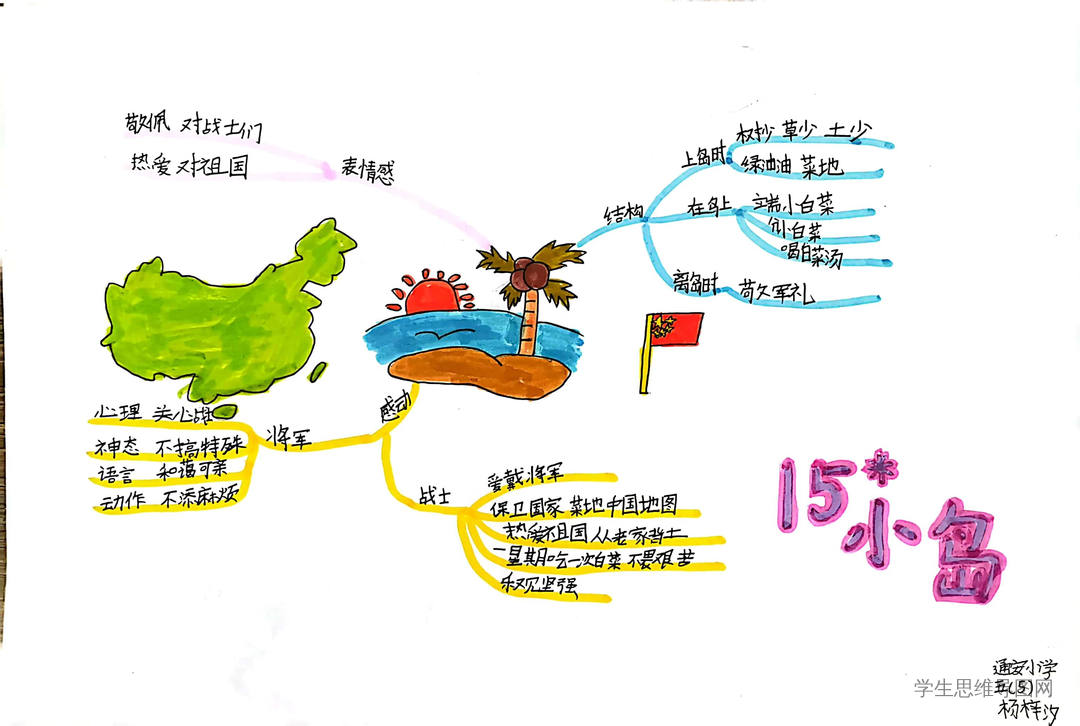 敬佩 对战士们
热爱 对祖国
表情感
结构
上岛时
树少 草少 土少
绿油油 菜地
在岛上
端小白菜
分小白菜
喝白菜汤
离岛时
苟久军礼
感动
将军
心理 关心战
神态 不搞特殊
语言 和蔼可亲
动作 不添麻烦
战士
爱戴将军
保卫国家 菜地中国地图
热爱祖国 从老家背土
一星期吃一次白菜 不畏艰苦
坚强
15*
小岛
通安小学
五(5)
学生思维导图网
杨梓汐